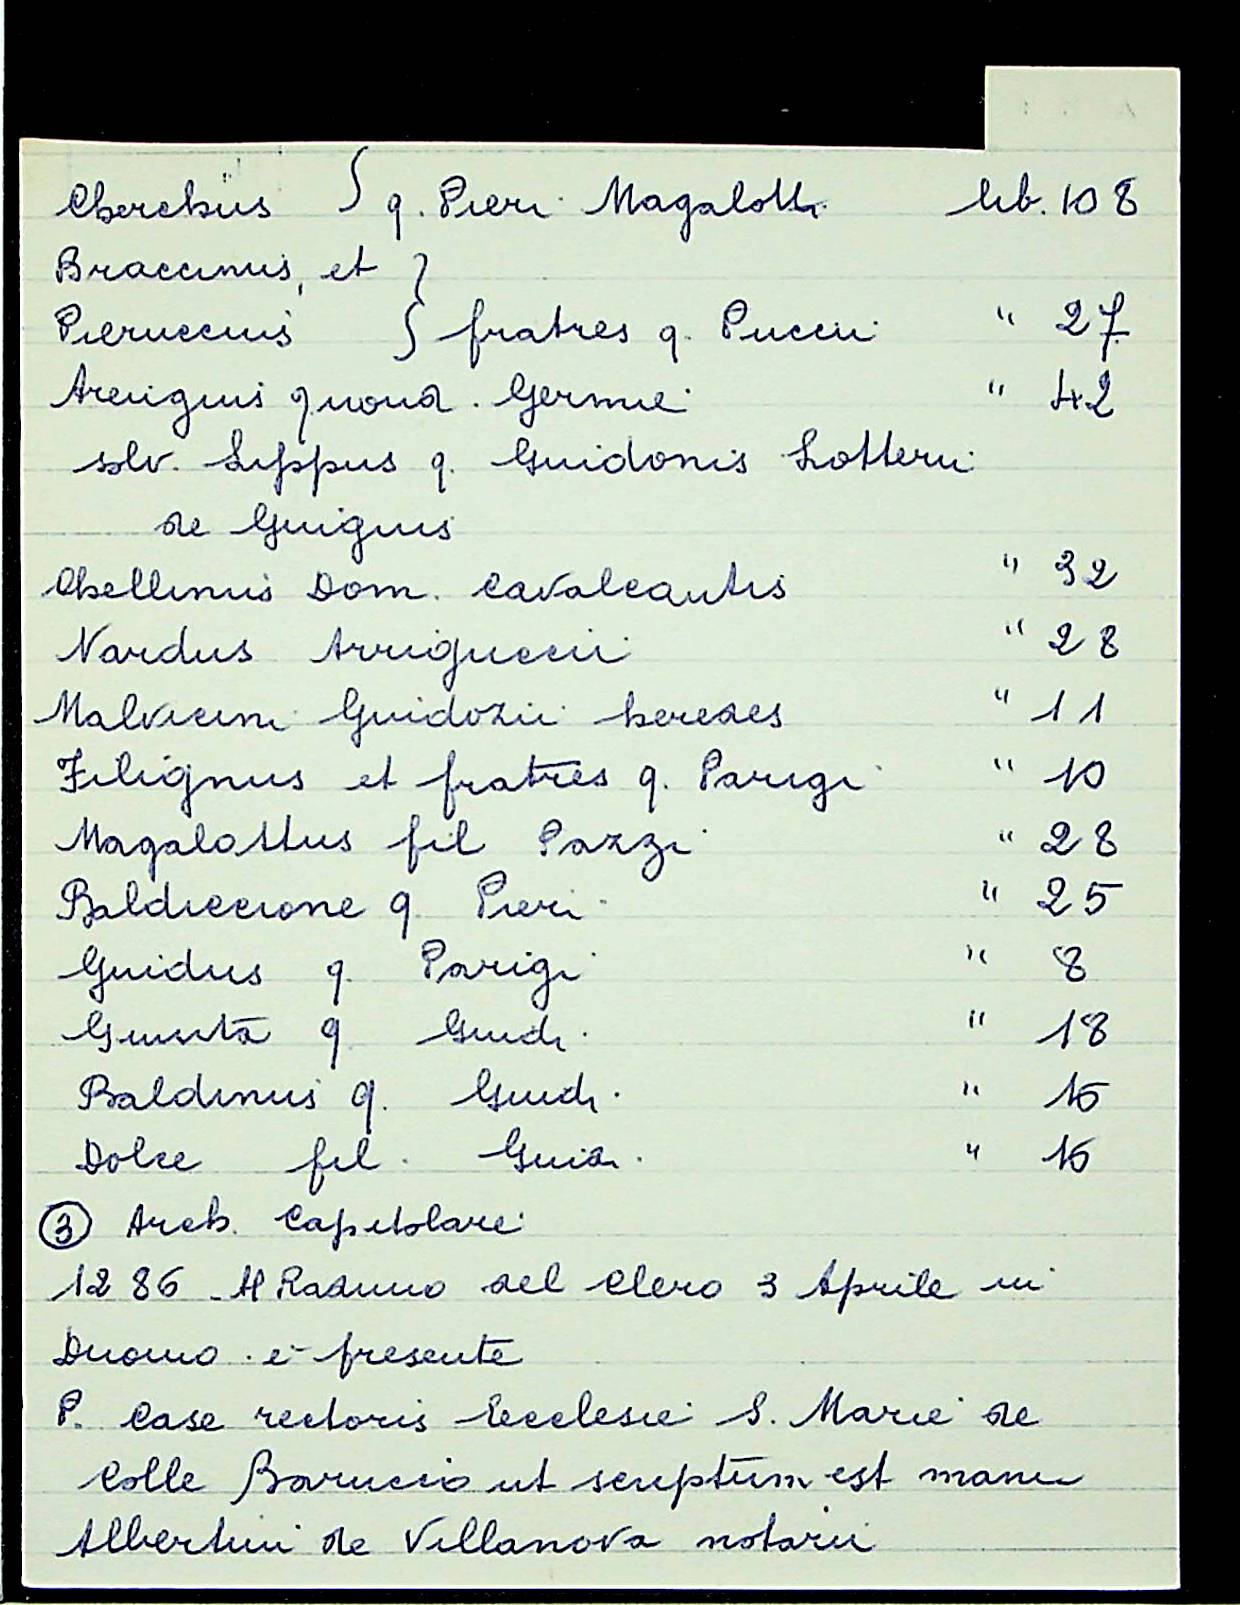 Cherchius } q. Pieri Magalotti lib. 108
Braccinus, et }
Pieruccius } fratres q. Puccii " 27
Arengius quond. Germie " 42
solv. Lippus q. Guidonis Lotterii
de Guignis
Chellinus Dom. Cavalcantis " 32
Nardus Arriguccii " 28
Malvicini Guidozii heredes " 11
Filignus et fratres q. Parigi " 10
Magalottus fil Pazzi " 28
Baldiccione q. Pieri " 25
Guidus q. Parigi " 8
Giunta q. Guidi " 18
Baldinus q. Guidi "
Dolce fil. Guidi "
③ Arch. Capitolare
1286 - Al Raduno del Clero 3 Aprile in
Duomo è presente
P. Case rectoris Ecclesie S. Marie de
Colle Baruccio ut scriptum est manu
Albertini de Villanova notarii